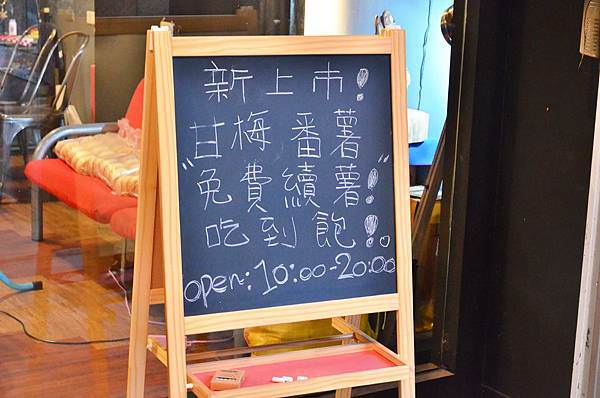 新上市!
甘梅番薯
"免費續薯!"
吃到飽!
open: 10:00-20:00